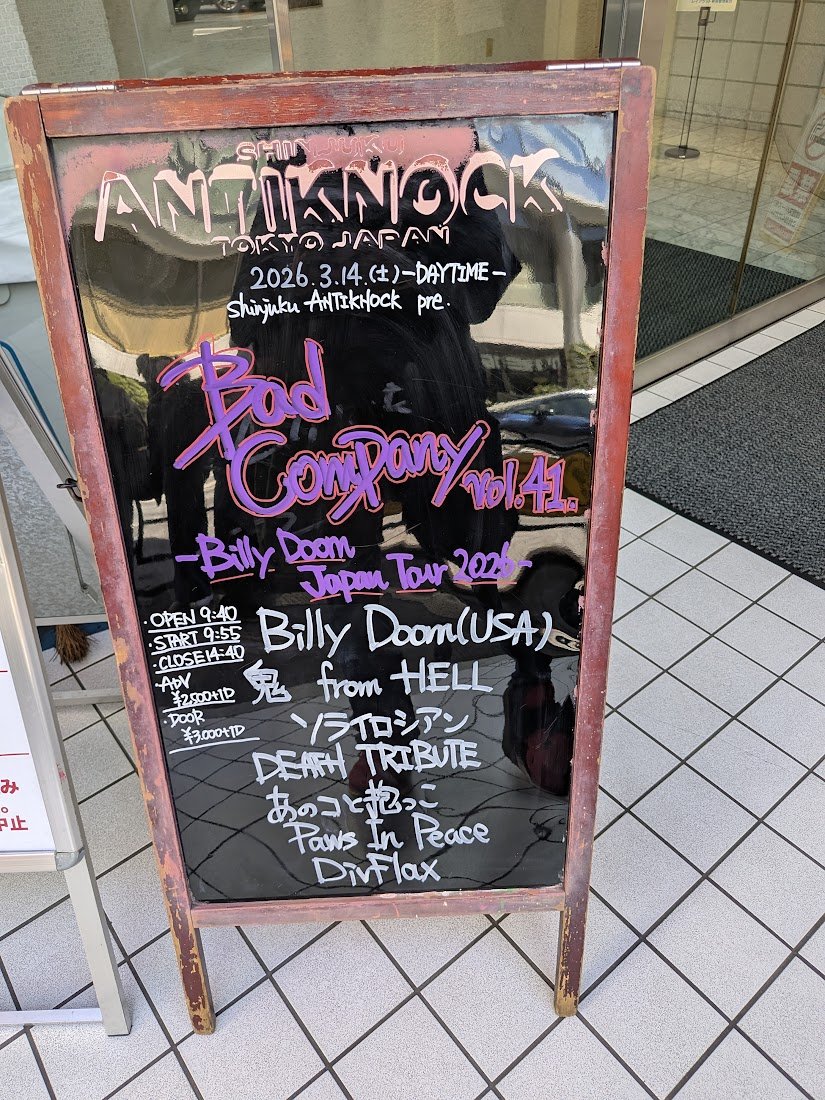 SHINJUKU
ANTIKNOCK
TOKYO JAPAN
2026.3.14.(土)-DAYTIME-
Shinjuku ANTIKNOCK pre.
Bad
Company vol.41.
-Billy Doom
Japan Tour 2026-
・OPEN 9:40
・START 9:55
・CLOSE 14:40
・ADV
¥2,500+1D
・DOOR
¥3,000+1D
Billy Doom(USA)
鬼 from HELL
ソライロシアン
DEATH TRIBUTE
あのコと抱っこ
Paws In Peace
DivFlax
み
。
中止